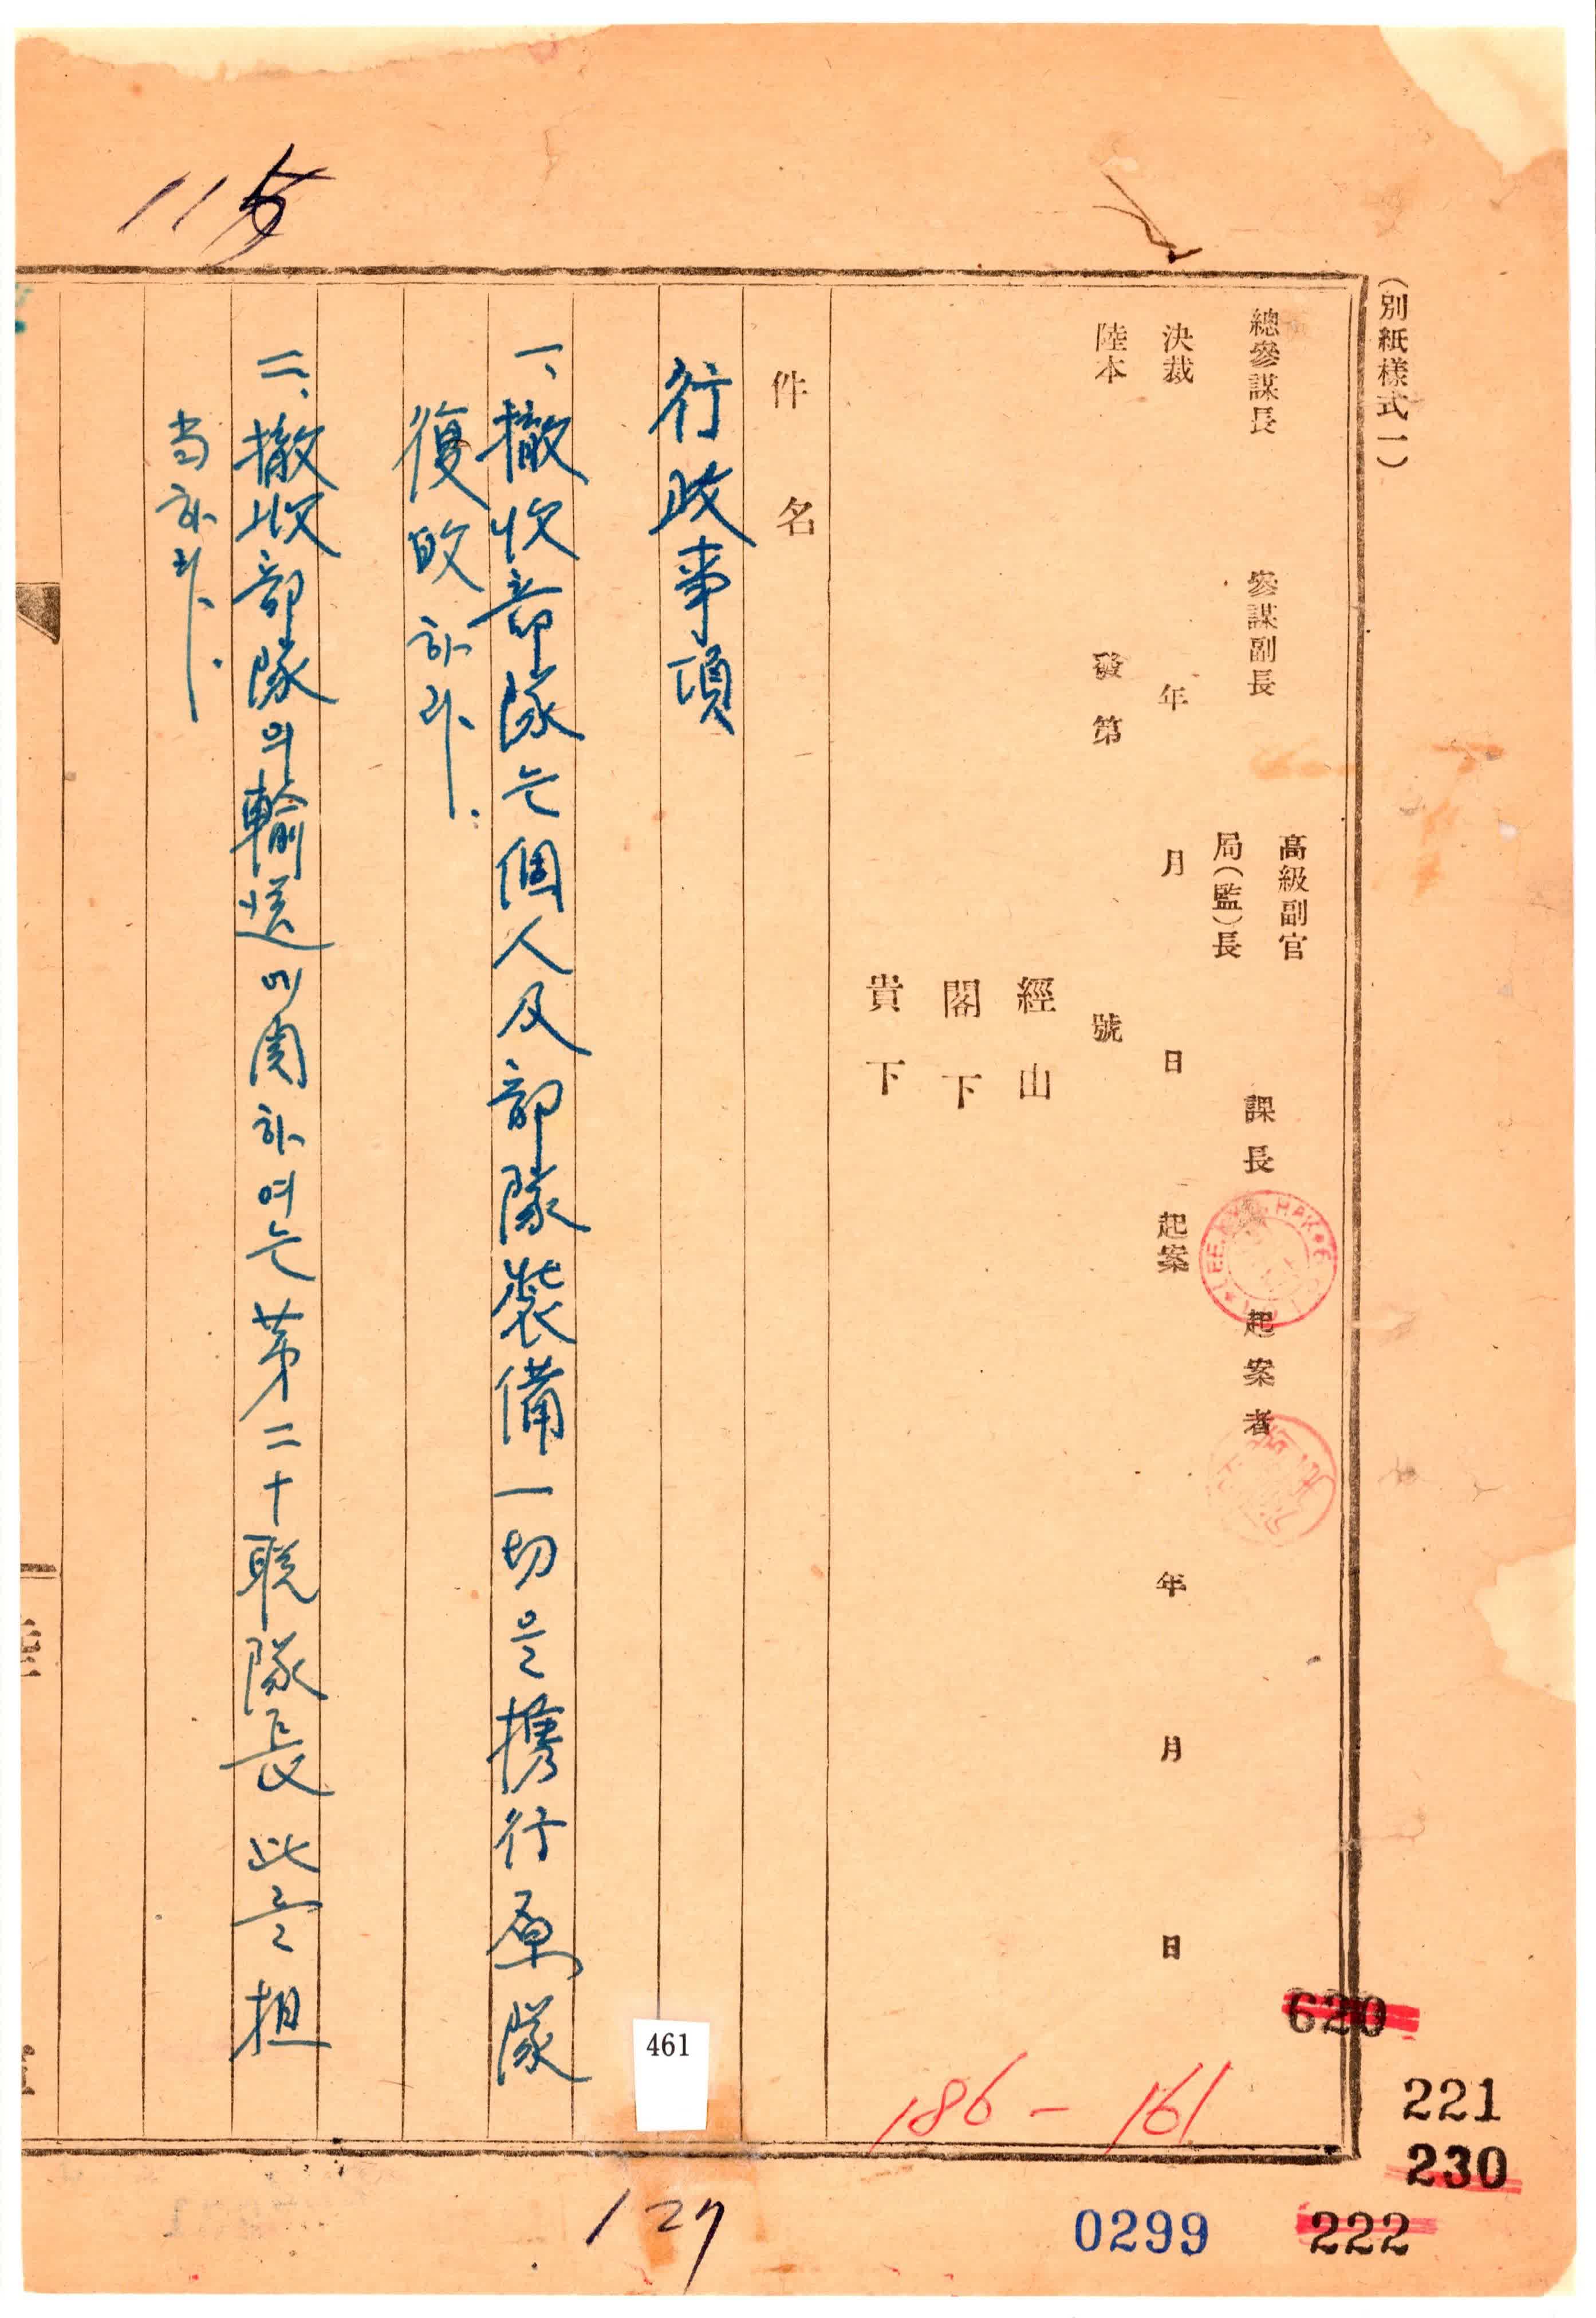 (別紙樣式一)
總參謀長 參謀副長 高級副官 局(監)長 課長 起案者
決裁 年 月 日 起案 年 月 日
陸本 發第 號
經山
閣下
貴下
件名
行政事項
一、撤收部隊는個人及部隊裝備一切을携行原隊
復歸하라.
二、撤收部隊의輸送에関하여는第二十聯隊長此를担
当하라.
620
221
230
222
0299
186-161
461
127